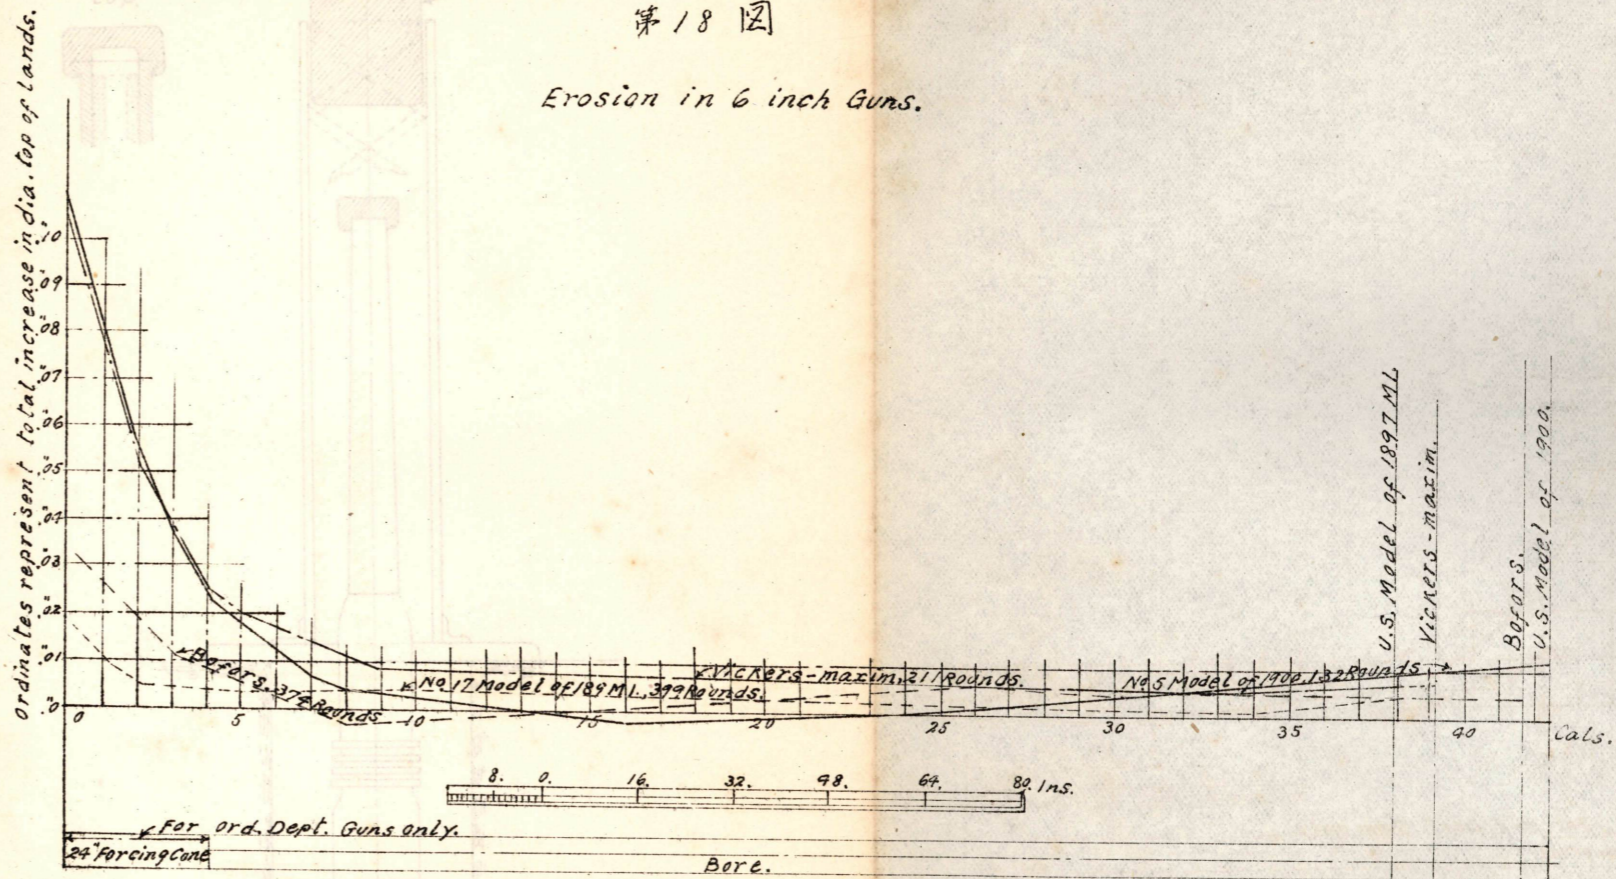 第18図
Erosion in 6 inch Guns.
Ordinates represent total increase in dia. top of lands.
.10
.09
.08
.07
.06
.05
.04
.03
.02
.01
.0
0 5 10 15 20 25 30 35 40 Cals.
Bofors. 374 Rounds
No 17 Model of 189 ML. 399 Rounds.
Vickers-maxim, 211 Rounds.
No 5 Model of 1900, 132 Rounds
U.S. Model of 1897 ML
Vickers-maxim.
Bofors.
U.S. Model of 1900.
8. 0. 16. 32. 48. 64. 80. Ins.
For Ord. Dept. Guns only.
24" Forcing Cone
Bore.